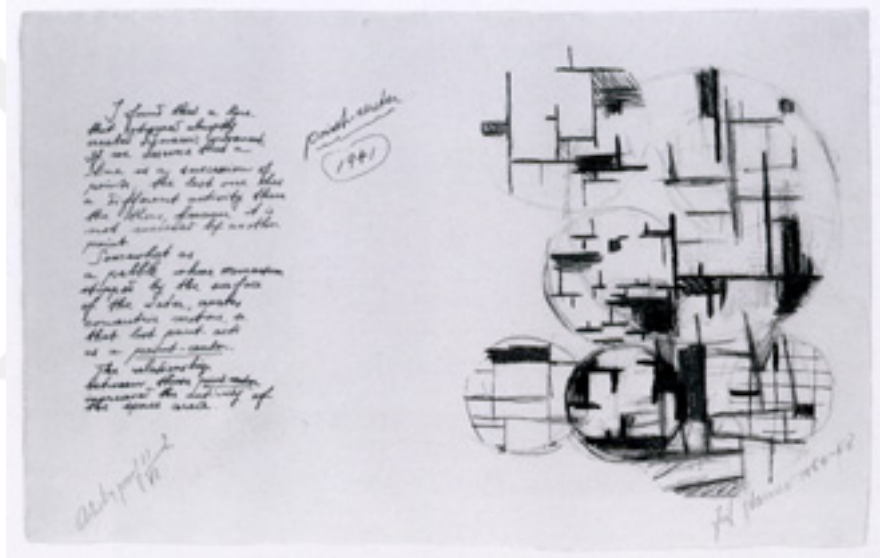 I found that a line
that stopped abruptly
If we assume that a
line is a succession of
points, the last one has
a different activity than
the others, because it is
not succeeded by another
point.
Somewhat as
a pebble whose momentum
stopped by the surface
of the water, creates
concentric motions, so
that last point acts
as a point-center.
The relationship
between these point-centers
increased the activity of
the space area.
point-center
1941